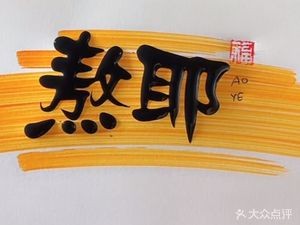 敖耶
福
AO
YE
大众点评